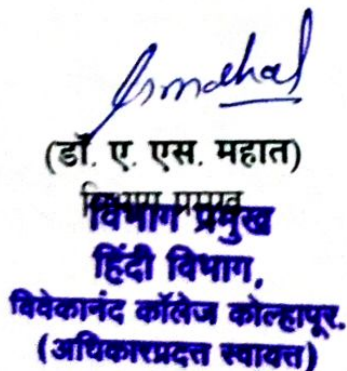 (डॉ. ए. एस. महात)
विभाग प्रमुख
विभाग प्रमुख
हिंदी विभाग,
विवेकानंद कॉलेज कोल्हापूर.
(अधिकारप्रदत्त स्वायत्त)